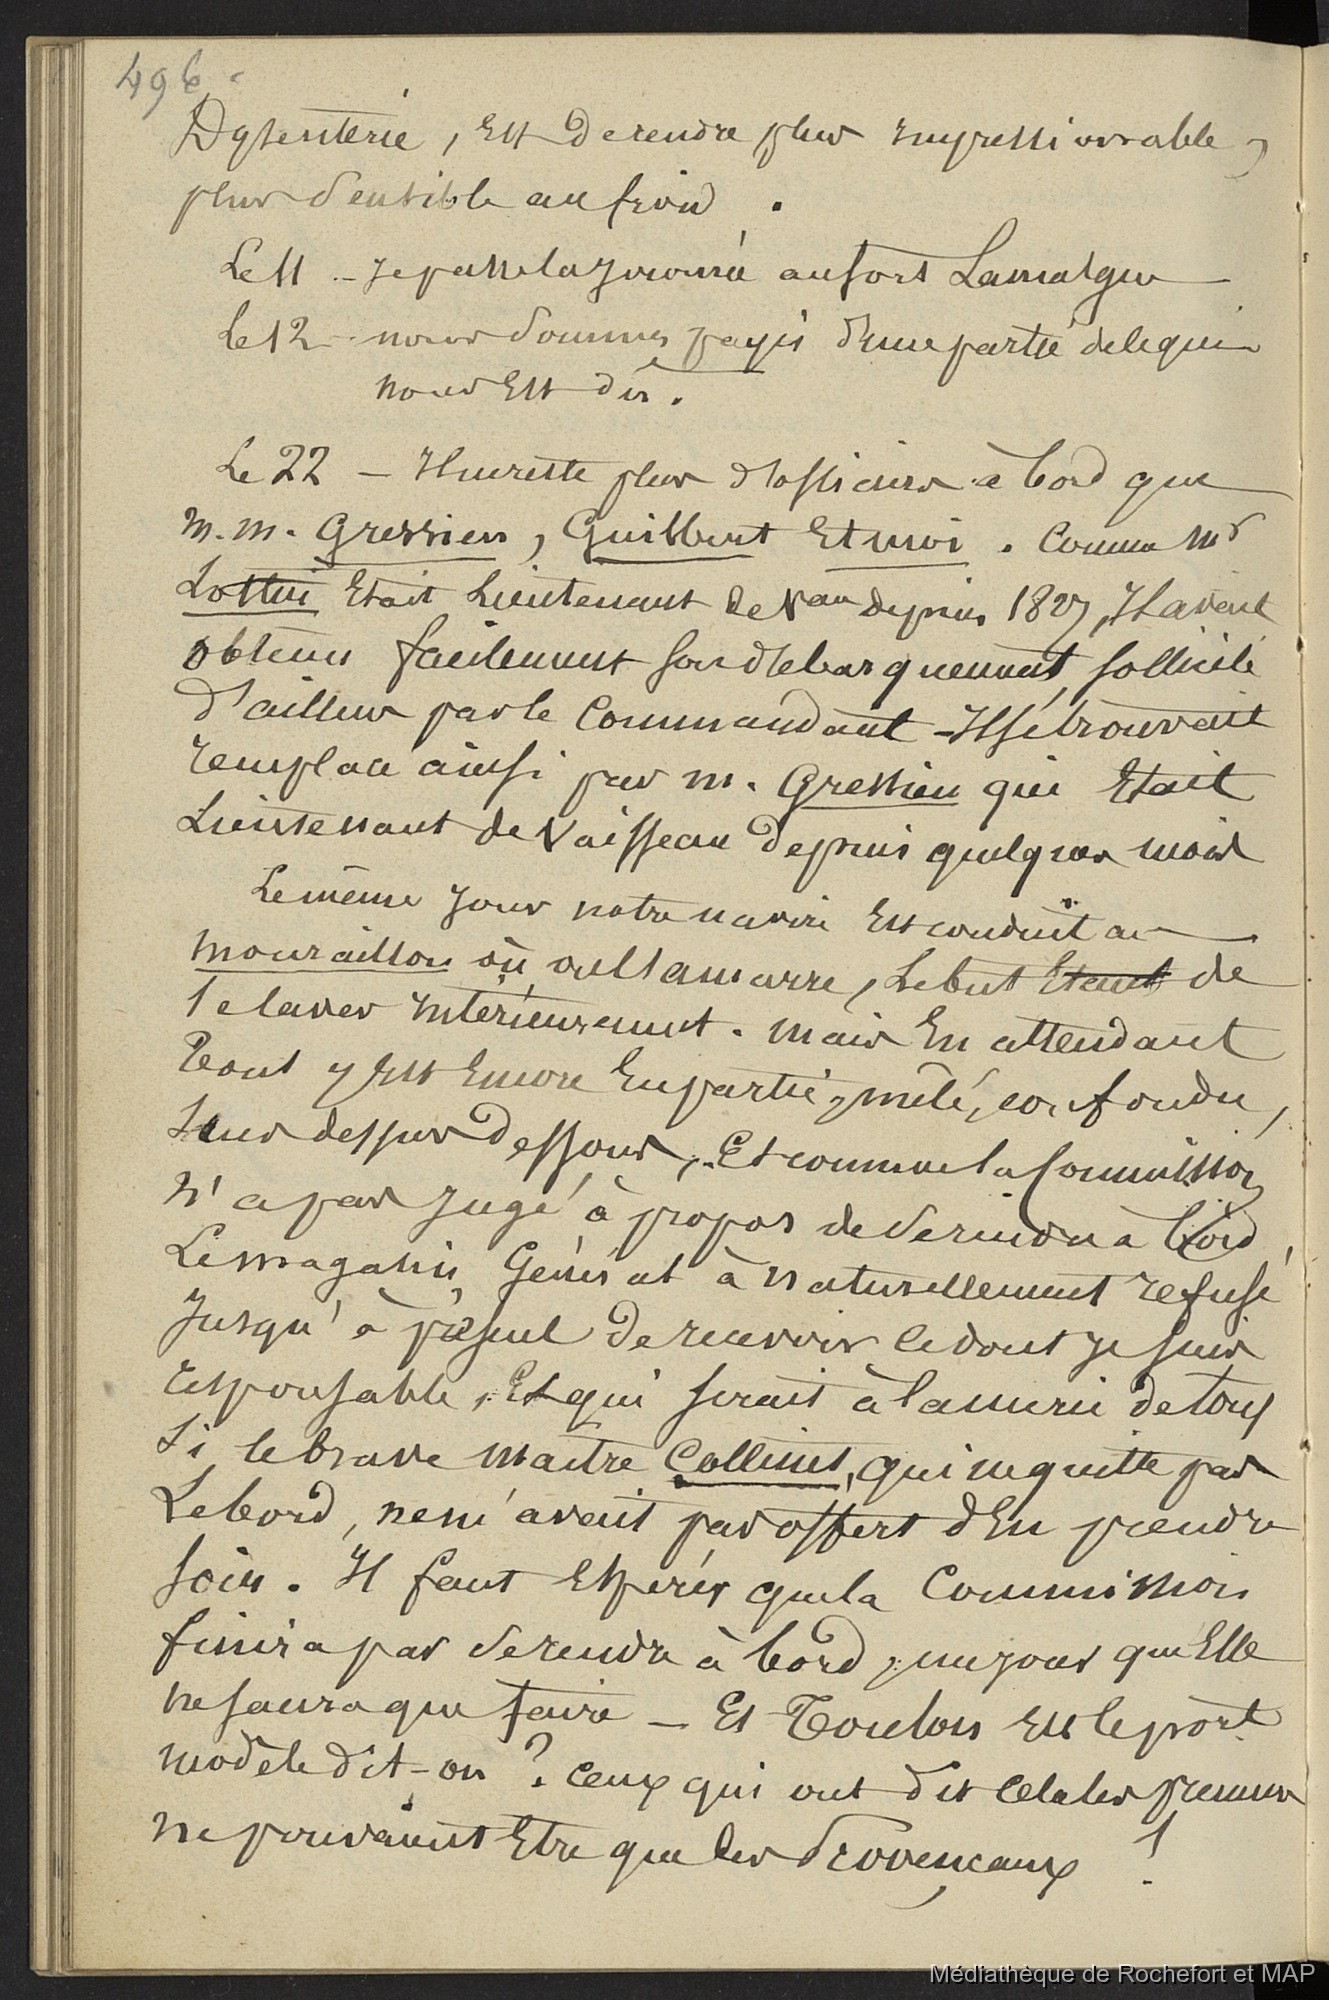 496.
Dysenterie, Est de rendre plus impressionnable,
plus sensible au froid.
Le 11 - Je passe la journée au fort Lamalgue
Le 12 - nous sommes payés d'une partie de ce qui
nous Est dû.
Le 22 - Il ne reste plus d'officiers à bord que
M.M. Gressien, Guilbert Et moi. Comme Mr
Lottin Etait Lieutenant de Vau depuis 1827, Il avait
obtenu facilement son débarquement, sollicité
d'ailleurs par le Commandant - Il se trouvait
remplacé ainsi par M. Gressien qui Etait
Lieutenant de Vaisseau depuis quelques mois
Le même jour notre navire Est conduit au
Mouraillon où on l'amarre, Le but Etant de
le laver intérieurement. Mais En attendant
Tout y Est Encore En partie, mêlé, confondu,
sens dessus dessous, Et comme la Commission
n'a pas jugé à propos de se rendre à bord,
Le magasin Général à naturellement refusé
jusqu'à présent de recevoir ce dont je suis
responsable, Et qui serait à la merci de tous
Si le brave Maitre Collinet, qui ne quitte pas
Le bord, ne m'avait pas offert d'En prendre
soin. Il faut Espérer que la Commission
finira par se rendre à bord, un jour qu'Elle
ne saura que faire - Et Toulon Est le port
modèle dit-on ? Ceux qui ont dit cela les premiers
ne pouvaient Etre que des Provençaux !
Médiathèque de Rochefort et MAP